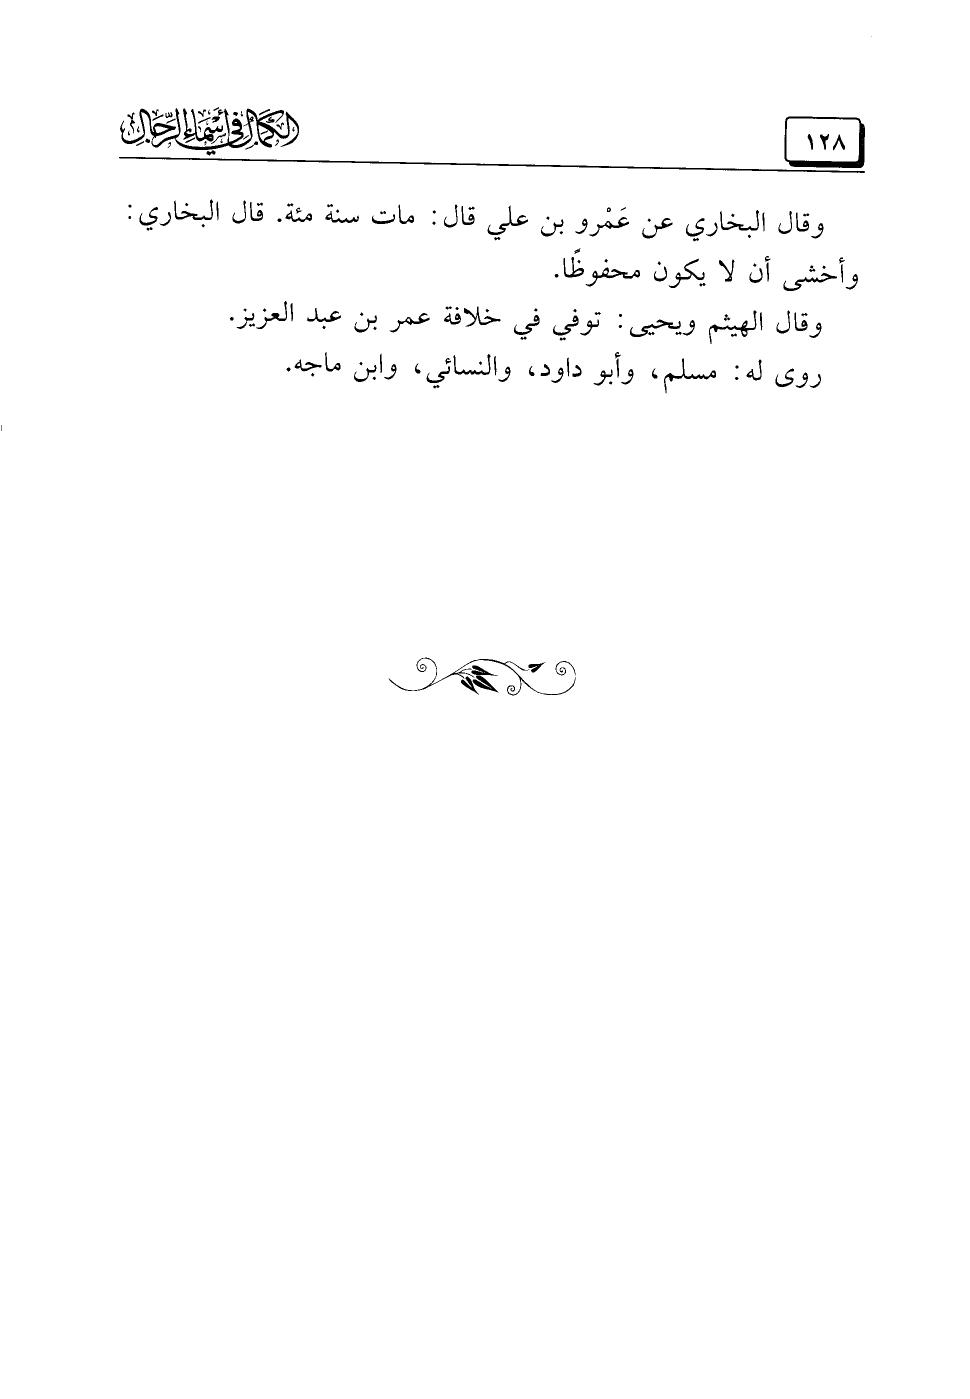 ١٢٨
الكمال في أسماء الرجال
وقال البخاري عن عَمْرو بن علي قال: مات سنة مئة. قال البخاري:
وأخشى أن لا يكون محفوظًا.
وقال الهيثم ويحيى: توفي في خلافة عمر بن عبد العزيز.
روى له: مسلم، وأبو داود، والنسائي، وابن ماجه.